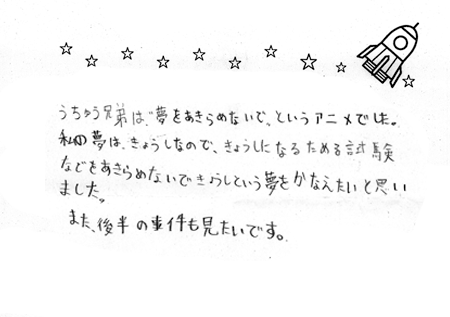 うちゅう兄弟は、"夢をあきらめないで、というアニメでした。
私の夢は、きょうしなので、きょうしになるためる試験
などをあきらめないできょうしという夢をかなえたいと思い
ました。
また、後半の事件も見たいです。